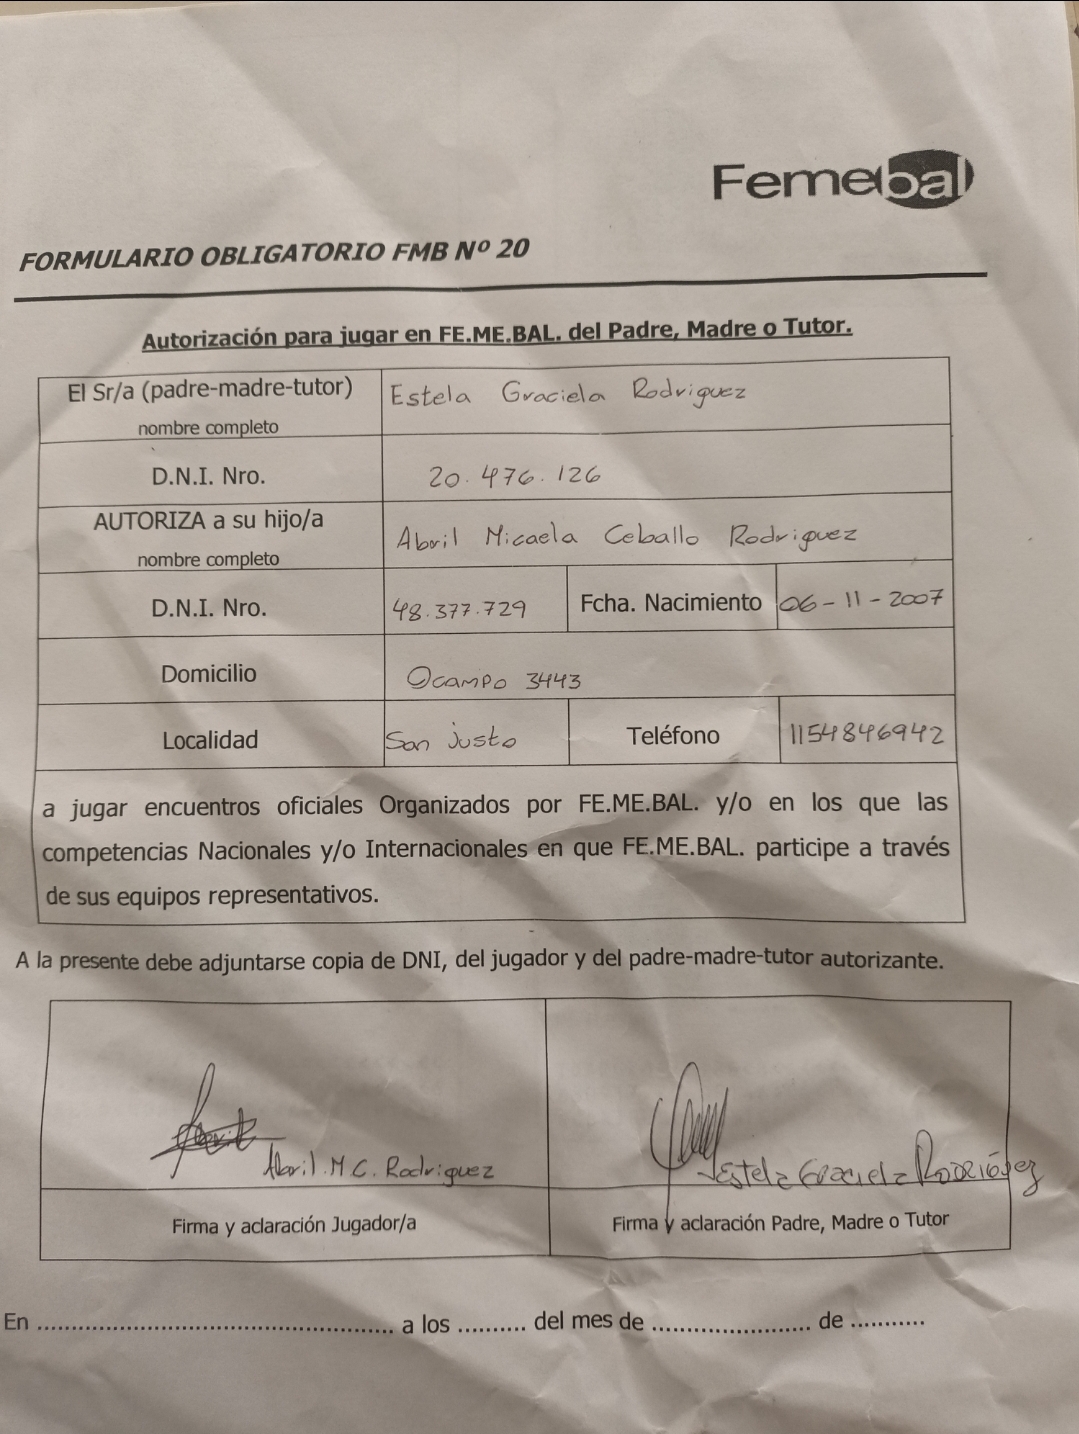 Femebal
FORMULARIO OBLIGATORIO FMB Nº 20
Autorización para jugar en FE.ME.BAL. del Padre, Madre o Tutor.
El Sr/a (padre-madre-tutor) Estela Graciela Rodriguez
nombre completo
D.N.I. Nro. 20.476.126
AUTORIZA a su hijo/a Abril Micaela Ceballo Rodriguez
nombre completo
D.N.I. Nro. 48.377.729 Fcha. Nacimiento 06-11-2007
Domicilio Ocampo 3443
Localidad San justo Teléfono 1154846942
a jugar encuentros oficiales Organizados por FE.ME.BAL. y/o en los que las
competencias Nacionales y/o Internacionales en que FE.ME.BAL. participe a través
de sus equipos representativos.
A la presente debe adjuntarse copia de DNI, del jugador y del padre-madre-tutor autorizante.
Abril.M.C. Rodriguez Estela Graciela Rodriguez
Firma y aclaración Jugador/a Firma y aclaración Padre, Madre o Tutor
En ..................................................... a los .......... del mes de ....................... de ...........